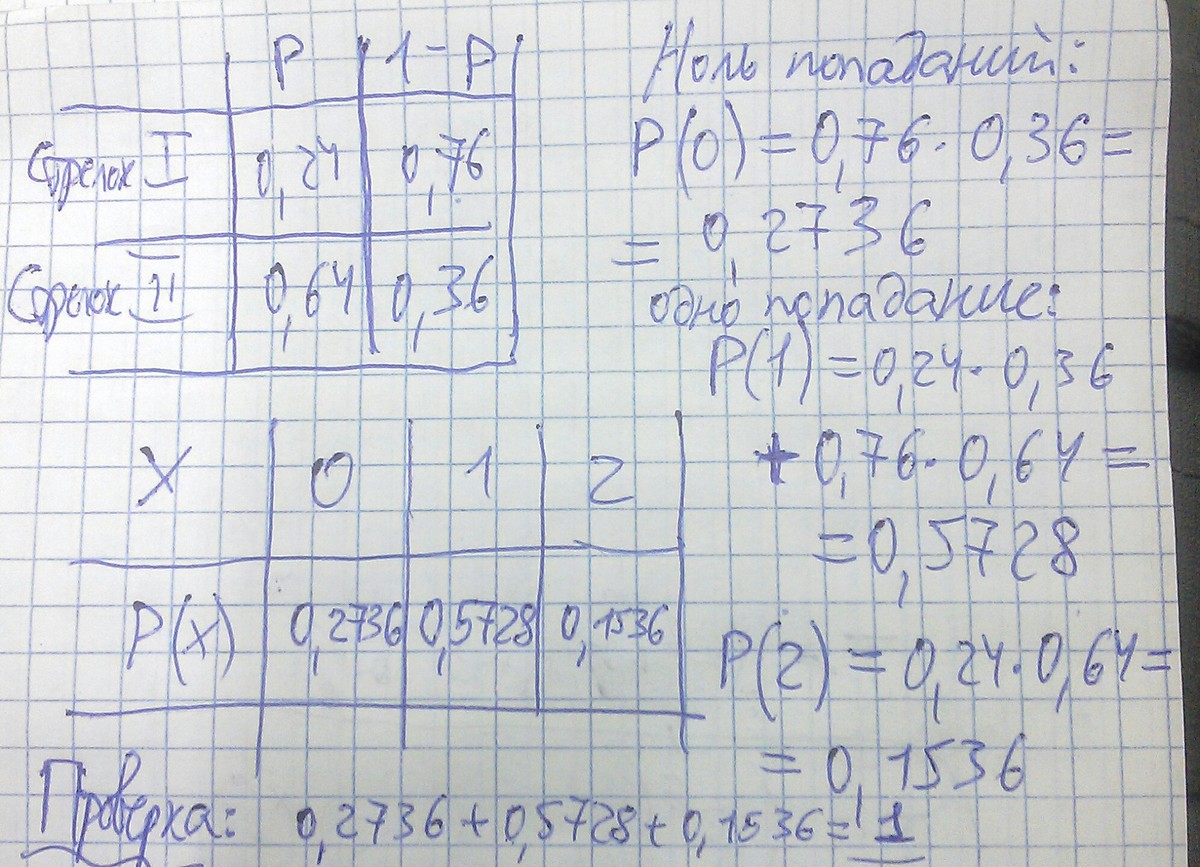 P 1-P
Стрелок I 0,24 0,76
Стрелок II 0,64 0,36
Ноль попаданий:
P(0) = 0,76 · 0,36 =
= 0,2736
одно попадание:
P(1) = 0,24 · 0,36
+ 0,76 · 0,64 =
= 0,5728
P(2) = 0,24 · 0,64 =
= 0,1536
X 0 1 2
P(x) 0,2736 0,5728 0,1536
Проверка: 0,2736 + 0,5728 + 0,1536 = 1